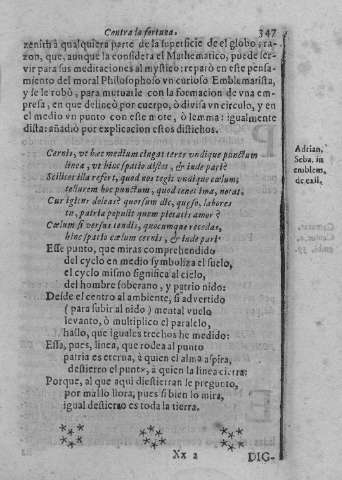 Contra la fortuna. 347
zenith à qualquiera parte de la superficie de el globo; ra-
zon, que, aunque la considera el Mathematico, puede ser-
vir para sus meditaciones al mystico: reparò en este pensa-
miento del moral Philosophoso vn curioso Emblemarista,
y se le robò, para mutuarle con la formacion de vna em-
presa, en que delineò por cuerpo, ò divisa vn circulo, y en
el medio vn punto con este mote, ò lemma: igualmente
dista: añadiò por explicacion estos distichos.
Cernis, vt hoc medium cingat teres vndique punctum
linea, vt hinc spatio distet, & inde pari?
Scilicet illa refert, quod nos tegit vndique cælum;
tellurem hoc punctum, quod tenet ima, notat.
Cur igitur doleas? quorsum dic, quæso, labores
tu, patria populit quem pietatis amor?
Cælum si versus tendis, quocumque recedas,
hinc spatio cælum cernis, & inde pari.
Adrian,
Seba. in
emblem,
de exil.
Esse punto, que miras comprehendido
del cyclo en medio symboliza el suelo,
el cyclo mismo significa al cielo,
del hombre soberano, y patrio nido:
Desde el centro al ambiente, si advertido
(para subir al nido) mental vuelo
levanto, ò multiplico el paralelo,
hallo, que iguales trechos he medido:
Essa, pues, linea, que rodea al punto
patria es eterna, à quien el alma aspira,
destierro el punto, à quien la linea cierra:
Porque, al que aqui destierran le pregunto,
por mas lo llora, pues si bien lo mira,
igual destierro es toda la tierra.
Xx 2 DIG-